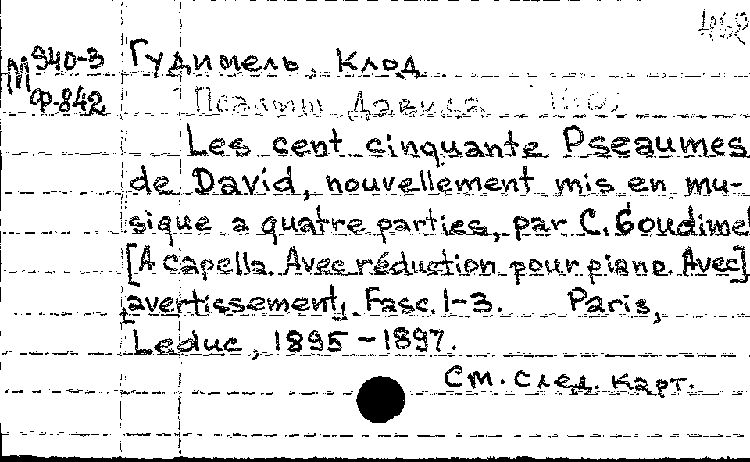 462
М 940-3 Гудимель, Клод
Ф-842 Псалмы Давида
Les cent cinquante Pseaumes
de David, nouvellement mis en mu-
sique a quatre parties, par C. Goudimel
[A capella. Avec réduction pour piano. Avec]
avertissement. Fasc. 1-3. Paris,
Leduc, 1895-1897.
См. след. карт.